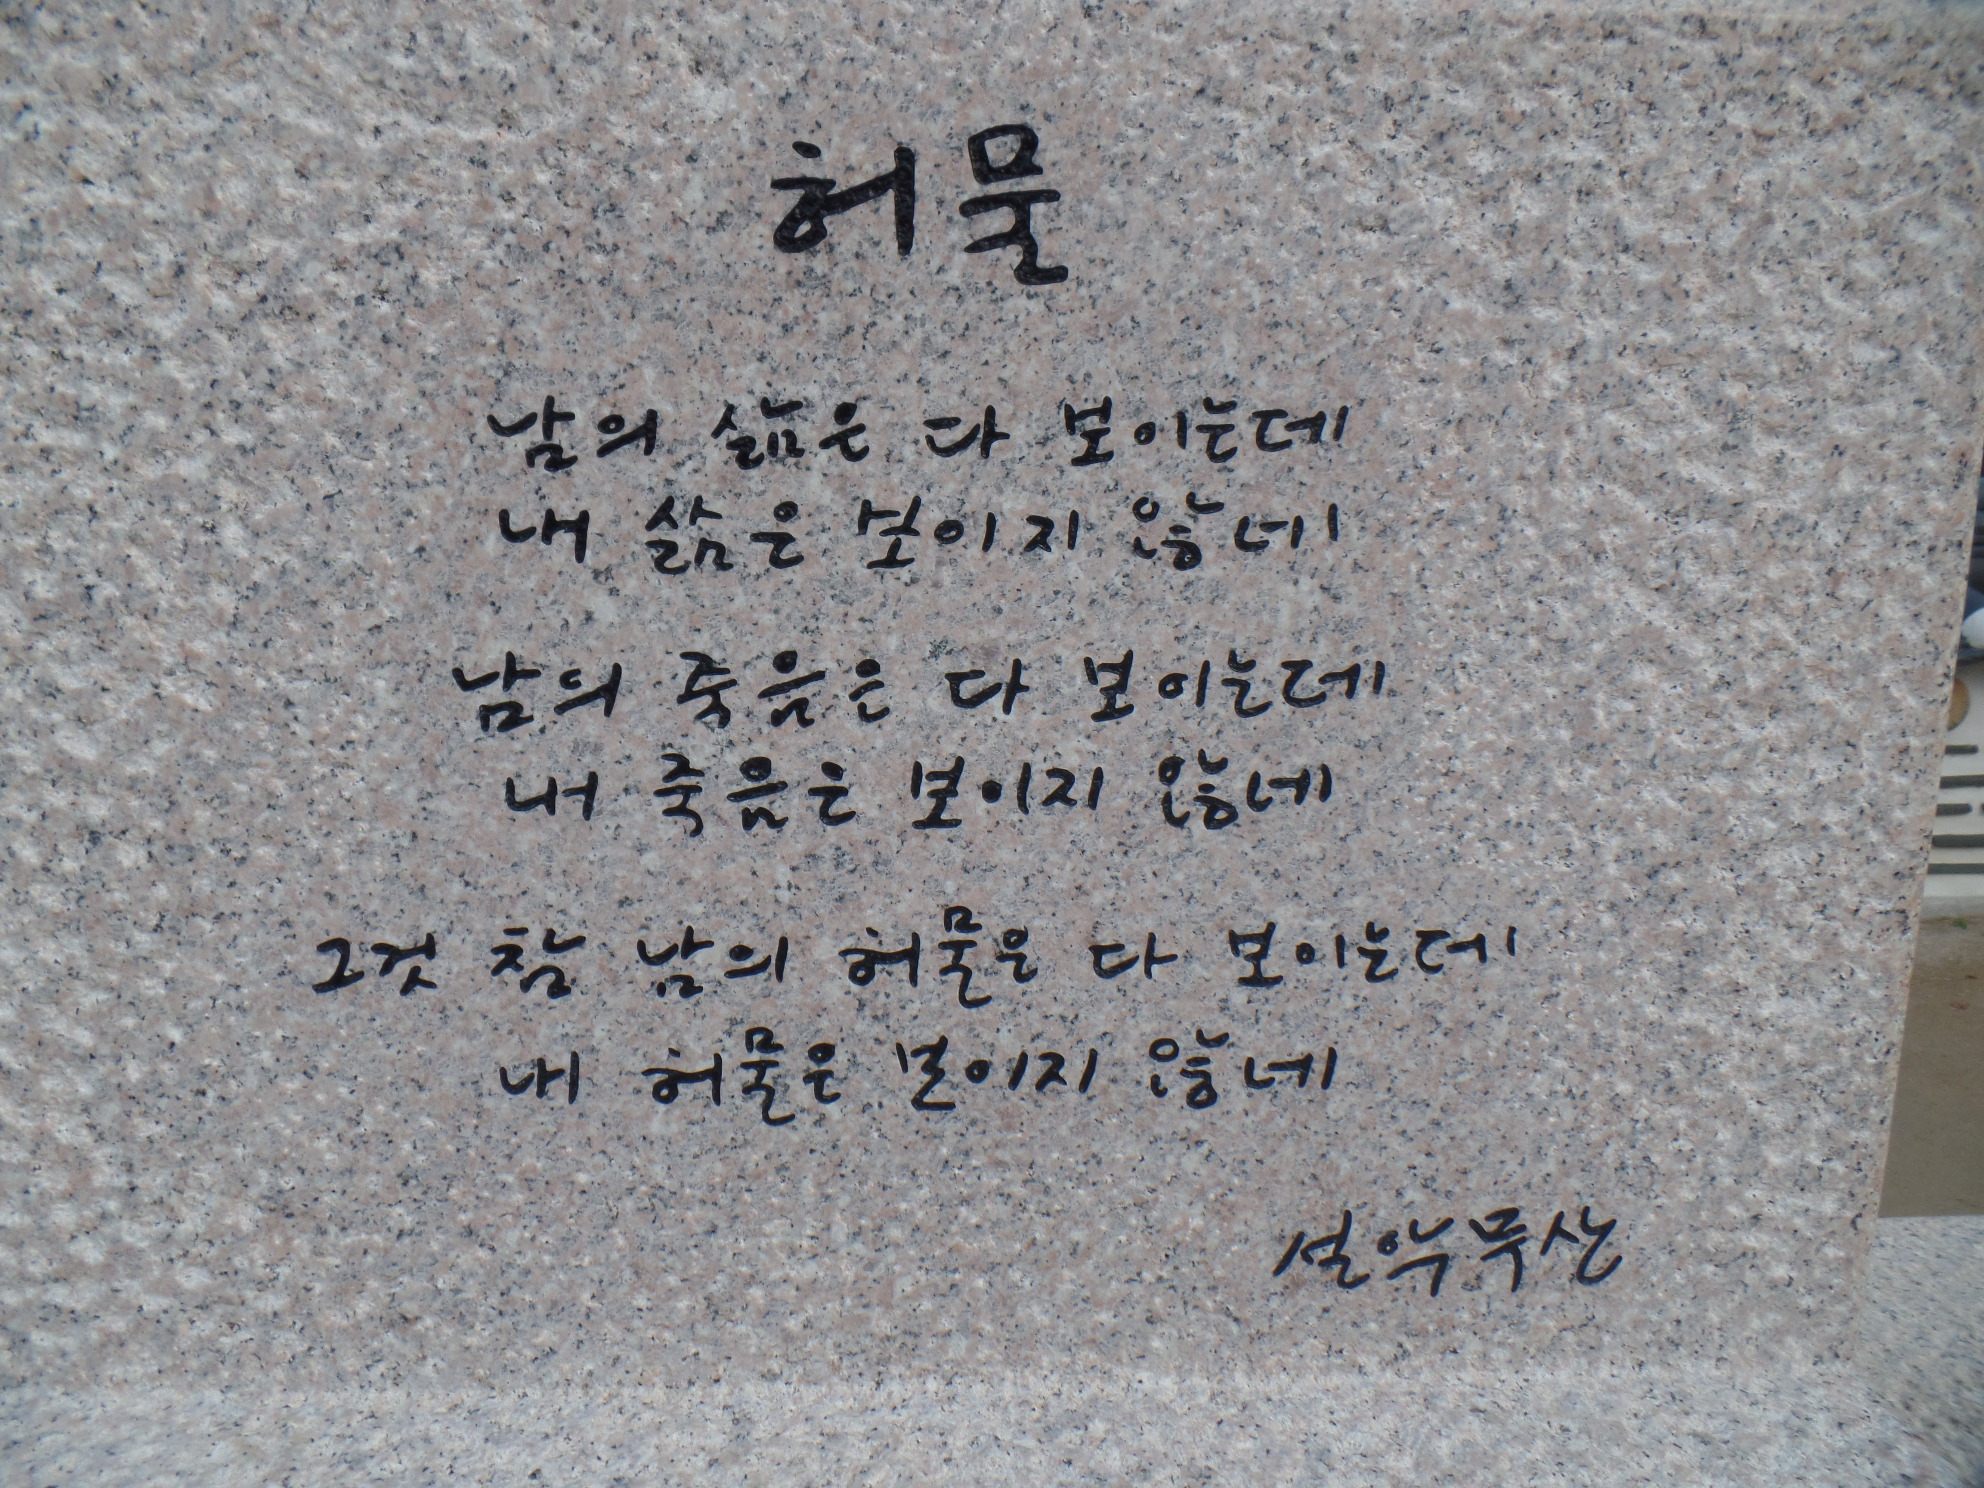 허물
남의 삶은 다 보이는데
내 삶은 보이지 않네
남의 죽음은 다 보이는데
내 죽음은 보이지 않네
그것 참 남의 허물은 다 보이는데
내 허물은 보이지 않네
설악무산